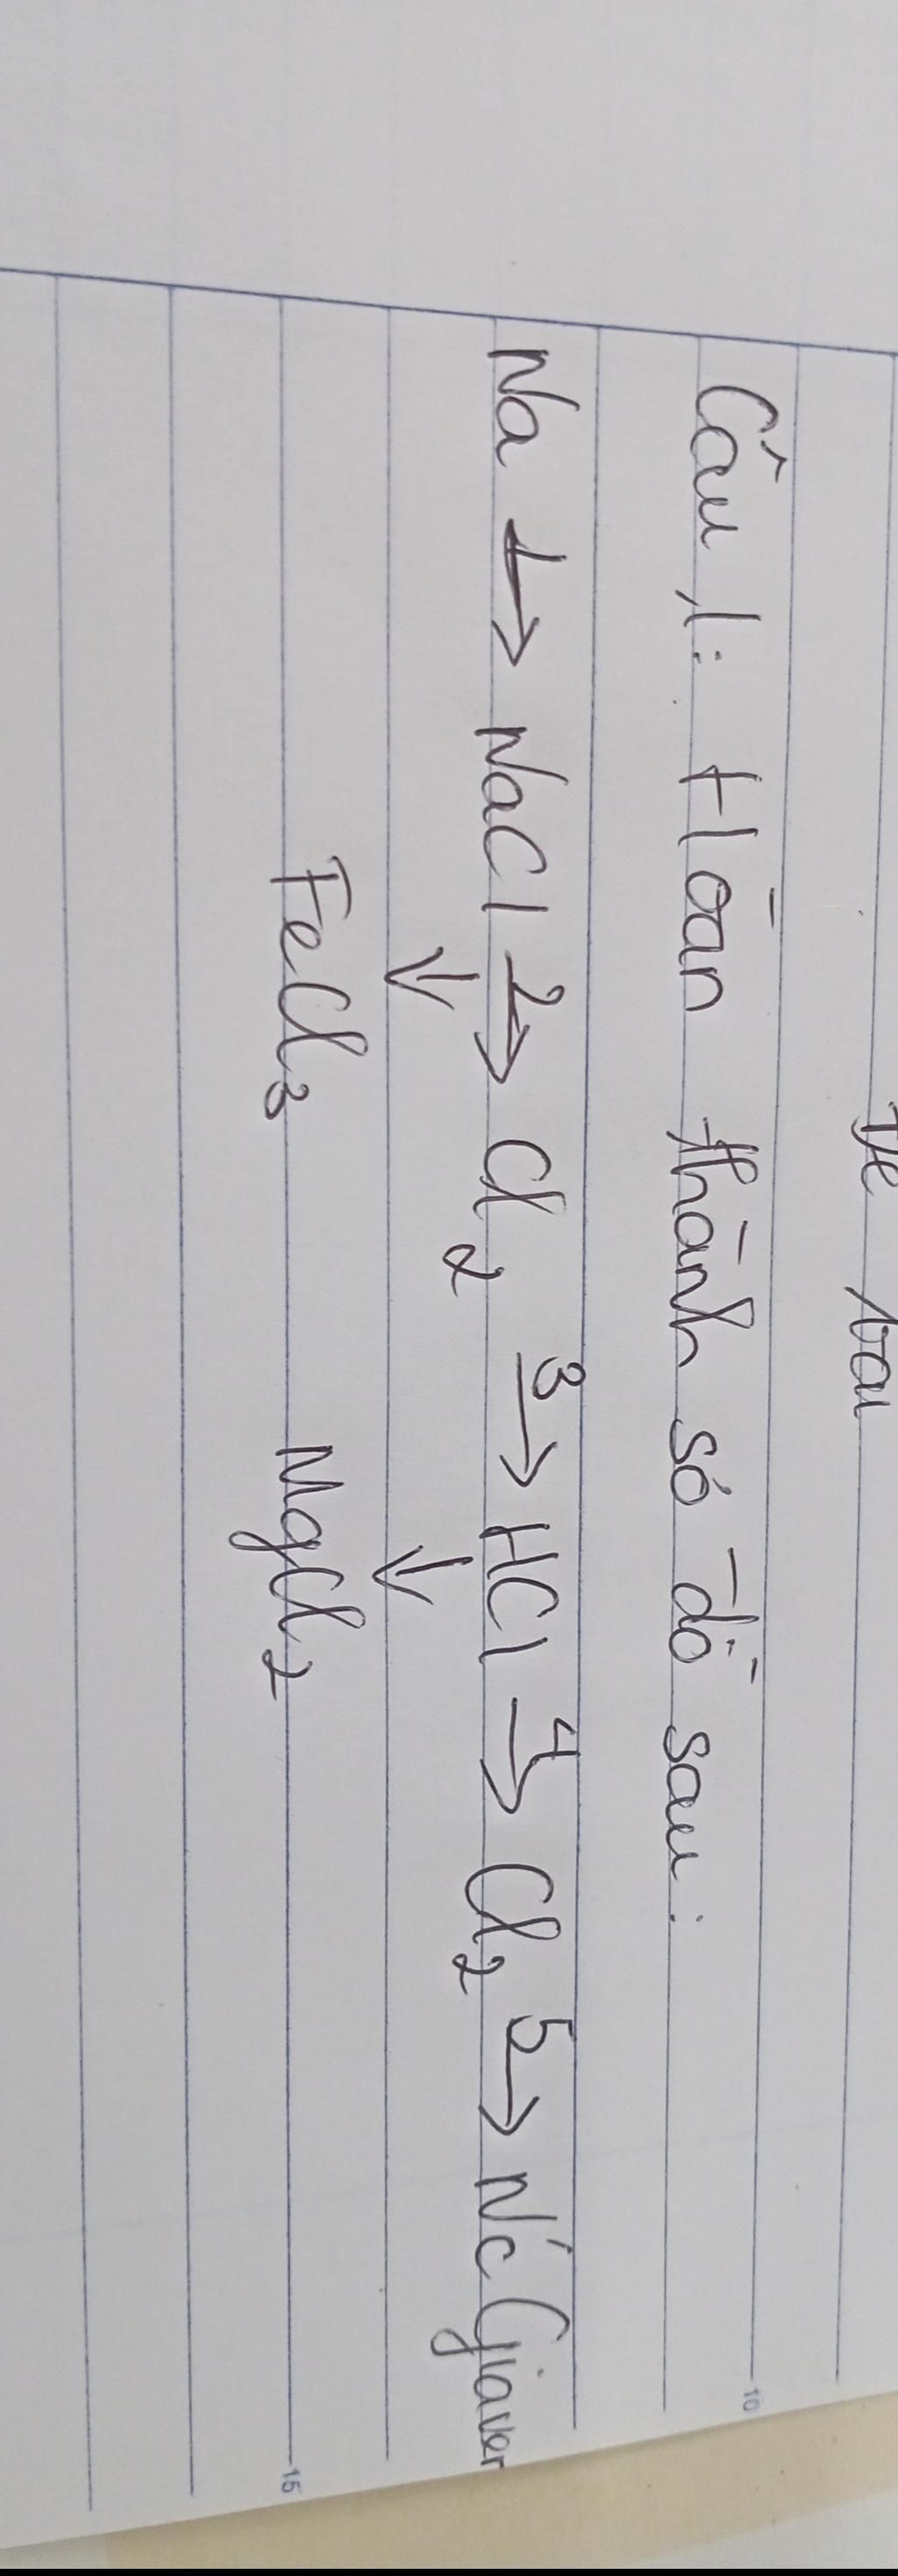 Đề bài
Câu 1: Hoàn thành sơ đồ sau:
Na 1→ NaCl 2→ Cl2 3→ HCl 4→ Cl2 5→ N'c Giaver
↓ ↓
FeCl3 MgCl2
10
15